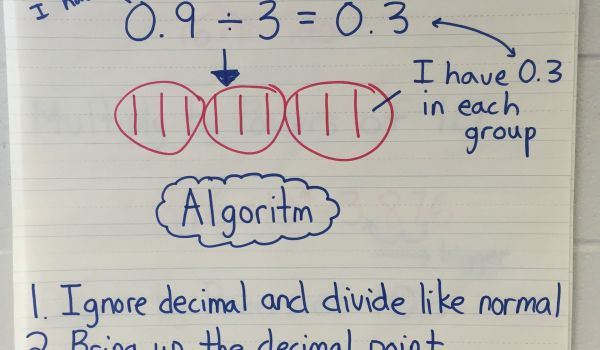 I
0.9 ÷ 3 = 0.3
I have 0.3
in each
group
Algoritm
1. Ignore decimal and divide like normal
2. Bring up the decimal point